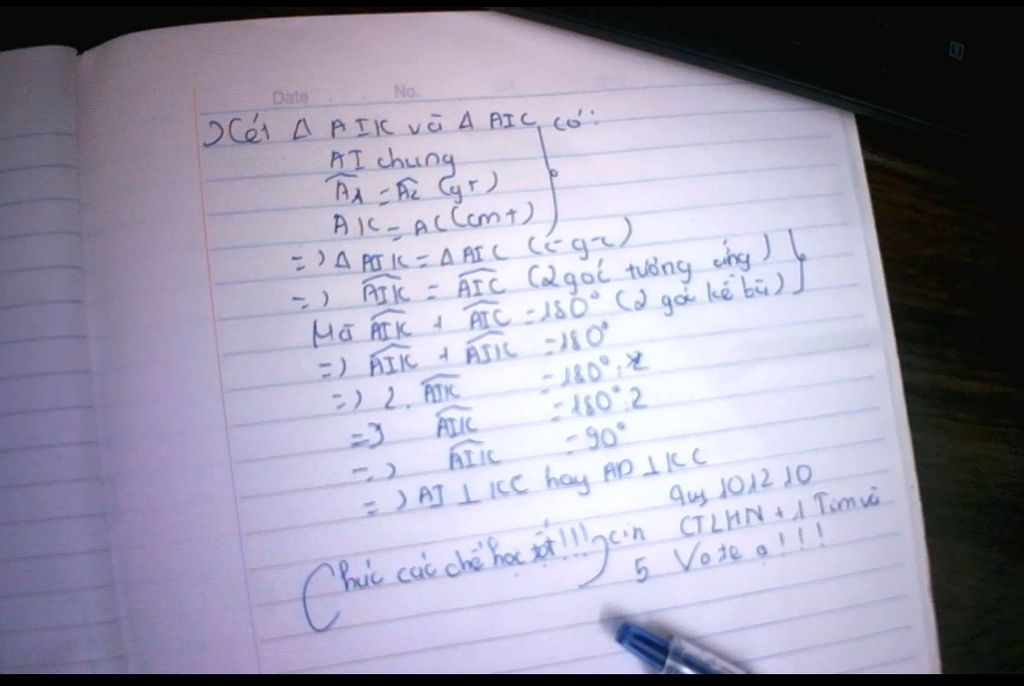 Date No.
Xét Δ AIK và Δ AIC có:
AI chung
Â1 = Â2 (gt)
AK = AC (cmt)
=> Δ AIK = Δ AIC (c-g-c)
=> AIK = AIC (2 góc tương ứng)
Mà AIK + AIC = 180° (2 góc kề bù)
=> AIK + AIK = 180°
=> 2. AIK = 180°
=> AIK = 180°:2
=> AIK = 90°
=> AI ⊥ KC hay AD ⊥ KC
quy101210
Chúc các chế học tốt!!! Xin CTLHN + 1 Tim và
5 Vote ạ!!!